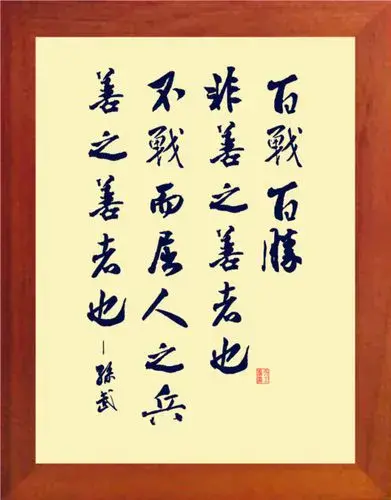 百戰百勝
非善之善者也
不戰而屈人之兵
善之善者也-孫武